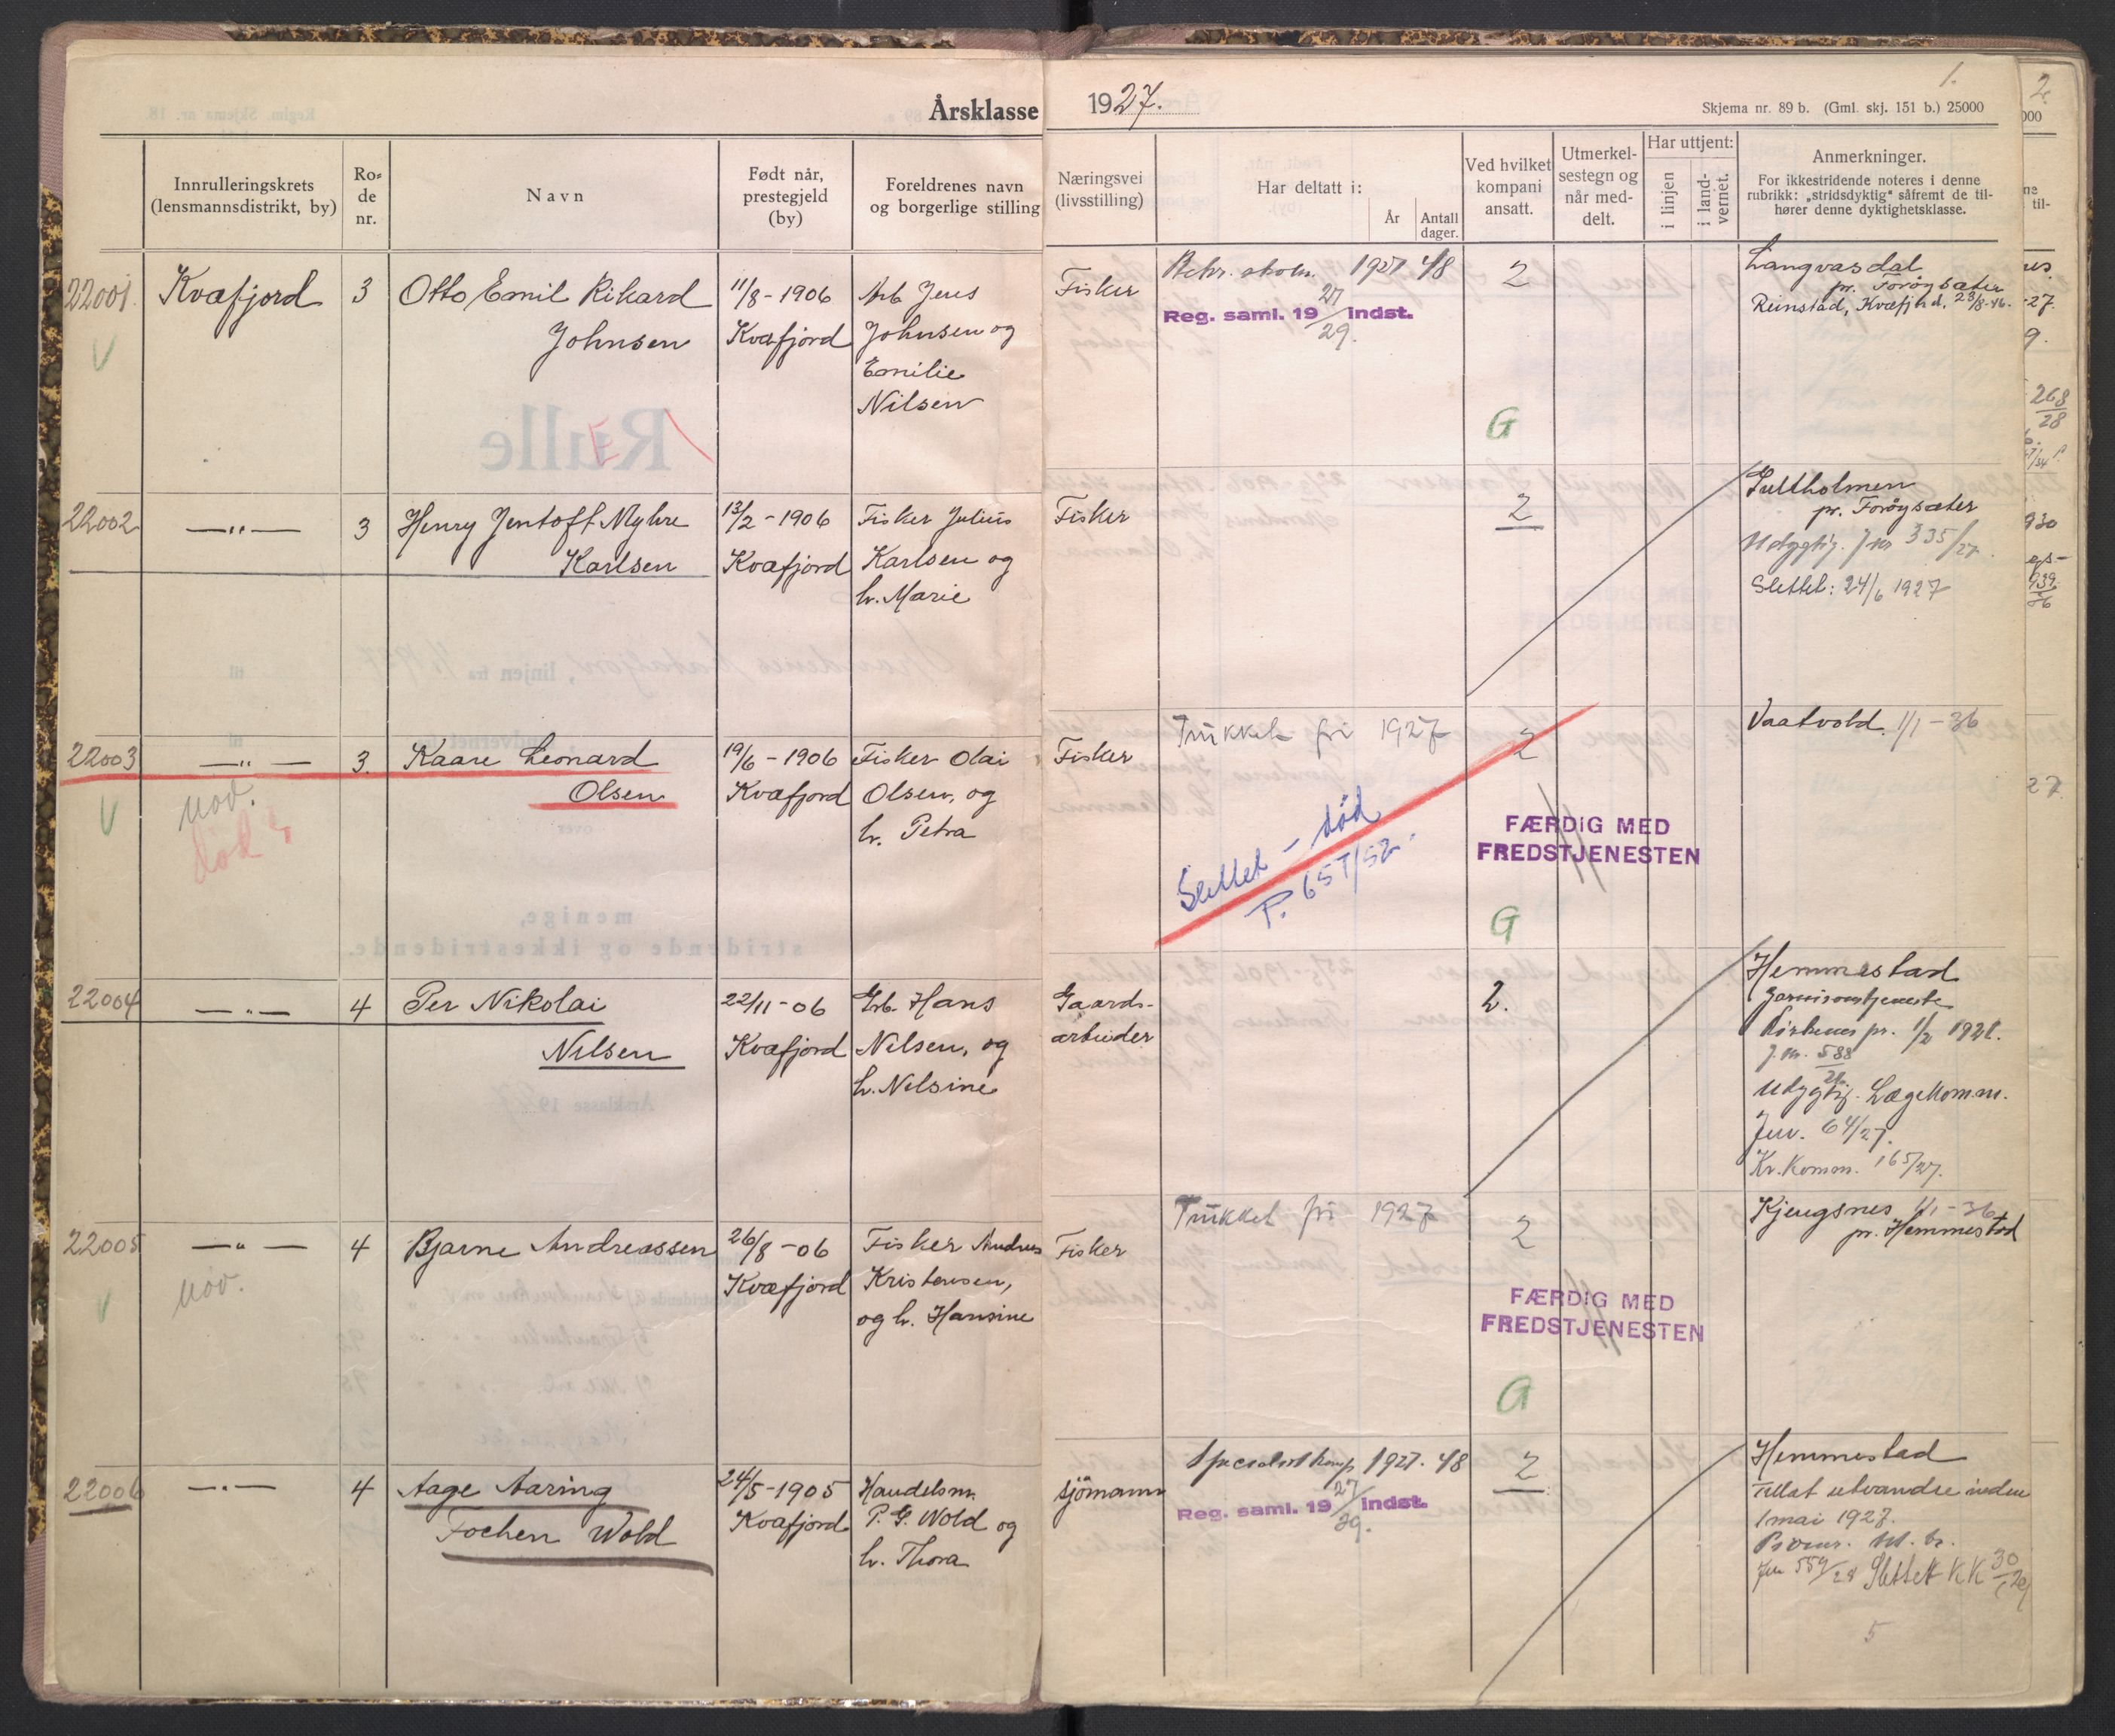 Årsklasse 1927.
1.
Skjema nr. 89 b. (Gml. skj. 151 b.) 25000
Innrulleringskrets
(lensmannsdistrikt, by)
Ro-
de
nr.
Navn
Født når,
prestegjeld
(by)
Foreldrenes navn
og borgerlige stilling
Næringsvei
(livsstilling)
Har deltatt i:
År
Antall
dager.
Ved hvilket
kompani
ansatt.
Utmerkel-
sestegn og
når med-
delt.
Har uttjent:
i linjen
i land-
vernet.
Anmerkninger.
For ikkestridende noteres i denne
rubrikk: „stridsdyktig" såfremt de til-
hører denne dyktighetsklasse.
22001 Kvæfjord 3 Otto Emil Rikard
Johnsen
11/8-1906
Kvæfjord
Arb. Jens
Johnsen og
Emilie
Nilsen
Fisker
Rekr. skolen. 1927 48
Reg. saml. 19 27/29. indst.
2
G
Langvasdal
pr. Forøysæter
Reinstad, Kvæfjord. 23/8-46.
22002 —"— 3 Henry Jentoft Myhre
Karlsen
13/2-1906
Kvæfjord
Fisker Julius
Karlsen og
h. Marie
Fisker
2
Gultholmen
pr. Forøysæter
Udygtig. J nr 335/27.
Slettet: 24/6 1927
22003 —"— 3. Kaare Leonard
Olsen
nov.
død
19/6-1906
Kvæfjord
Fisker Olai
Olsen, og
h. Petra
Fisker
Trukket fri 1927
2
Slettet - død
P. 657/52.
FÆRDIG MED
FREDSTJENESTEN
G
Vaatvold 1/1-36
22004 —"— 4 Per Nikolai
Nilsen
22/11-06
Kvæfjord
Grb. Hans
Nilsen, og
h. Nilsine
Gaards-
arbeider
2.
Hemmestad
Garnisonstjeneste
Kirkenes pr. 1/2 1928.
J. nr. 588
Udygtig. Lægekomm.
Jnr. 64/27.
Kr. Komm. 165/27.
22005 —"— 4 Bjarne Andreassen
nov.
26/8-06
Kvæfjord
Fisker Andreas
Kristensen,
og h. Hansine
Fisker
Trukket fri 1927
2
FÆRDIG MED
FREDSTJENESTEN
G
Kjengsnes 1/1-36
pr. Hemmestad
22006 —"— 4 Aage Aaring
Jochen Wold
24/5-1905
Kvæfjord
Handelsm.
P. G. Wold og
h. Thora
sjømann
Specialistkomp 1927. 48
Reg. saml. 19 27/29. indst.
2
Hemmestad
Tillat utvandre inden
1 mai 1927.
Jnr 559/28 Slettet KK 30
5